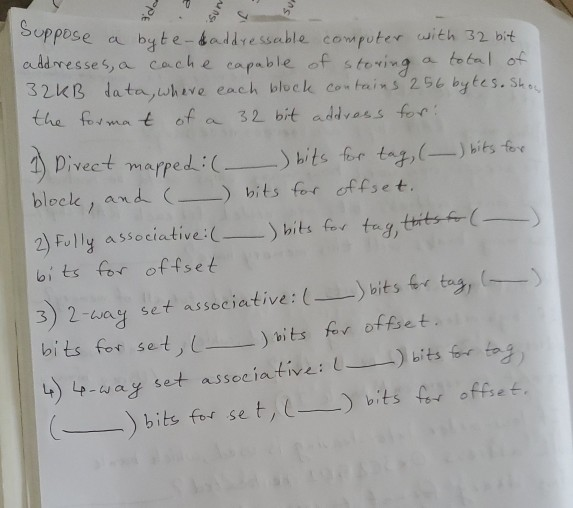 Suppose a byte-addressable computer with 32 bit
addresses, a cache capable of storing a total of
32KB data, where each block contains 256 bytes. Sho
the format of a 32 bit address for:
1) Direct mapped: (___) bits for tag, (___) bits for
block, and (___) bits for offset.
2) Fully associative: (___) bits for tag, (___)
bits for offset
3) 2-way set associative: (___) bits for tag, (___)
bits for set, (___) bits for offset.
4) 4-way set associative: (___) bits for tag,
(___) bits for set, (___) bits for offset.